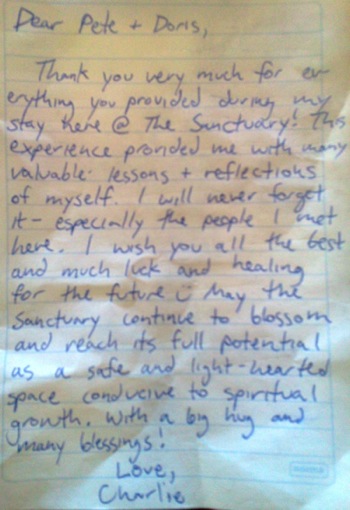 Dear Pete + Doris,
Thank you very much for ev-
erything you provided during my
stay here @ The Sanctuary! This
experience provided me with many
valuable lessons + reflections
of myself. I will never forget
it - especially the people I met
here. I wish you all the best
and much luck and healing
for the future :) May the
Sanctuary continue to blossom
and reach its full potential
as a safe and light-hearted
space conducive to spiritual
growth. With a big hug and
many blessings!
Love,
Charlie